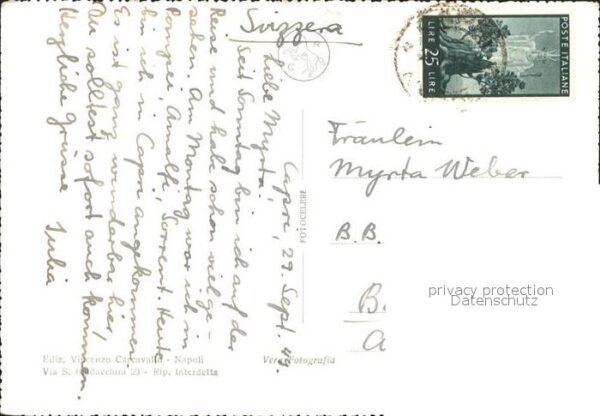 Svizzera
POSTE ITALIANE
LIRE 25 LIRE
Capri, 29. Sept. 47.
Liebe Myrta!
Seit Sonntag bin ich auf der
Reise und habe schon viel ge-
sehen. Am Montag war ich in
Pompei, Amalfi, Sorrent. Heute
bin ich in Capri angekommen.
Es ist ganz wunderbar hier,
Du solltest sofort auch kommen.
Herzliche Grüsse Julia
FOTOCELERE
Fräulein
Myrta Weber
B.B.
B.
A
privacy protection
Datenschutz
Ediz. Vincenzo Carcavallo - Napoli
Via S. 29 - Rip. interdetta
Vera Fotografia